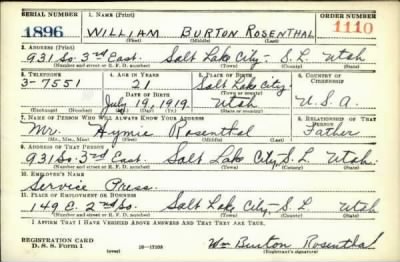 SERIAL NUMBER 1. NAME (Print) ORDER NUMBER
1896 WILLIAM BURTON ROSENTHAL 1110
(First) (Middle) (Last)
2. ADDRESS (Print)
931 So. 3rd East. Salt Lake City. S.L. Utah
(Number and street or R. F. D. number) (Town) (County) (State)
3. TELEPHONE 4. AGE IN YEARS 5. PLACE OF BIRTH 6. COUNTRY OF CITIZENSHIP
3-7551 21 Salt Lake City
DATE OF BIRTH (Town or county)
July 19, 1919. Utah U.S.A.
(Exchange) (Number) (Mo.) (Day) (Yr.) (State or country)
7. NAME OF PERSON WHO WILL ALWAYS KNOW YOUR ADDRESS 8. RELATIONSHIP OF THAT PERSON
Mr. Hymie Rosenthal Father
(Mr., Mrs., Miss) (First) (Middle) (Last)
9. ADDRESS OF THAT PERSON
931 So 3rd East. Salt Lake City, S.L. Utah.
(Number and street or R. F. D. number) (Town) (County) (State)
10. EMPLOYER'S NAME
Service Press.
11. PLACE OF EMPLOYMENT OR BUSINESS
149 E. 2nd So. Salt Lake City - S.L. Utah
(Number and street or R. F. D. number) (Town) (County) (State)
I AFFIRM THAT I HAVE VERIFIED ABOVE ANSWERS AND THAT THEY ARE TRUE.
REGISTRATION CARD
D. S. S. Form 1 (over) 16-17105 Wm Burton Rosenthal
(Registrant's signature)